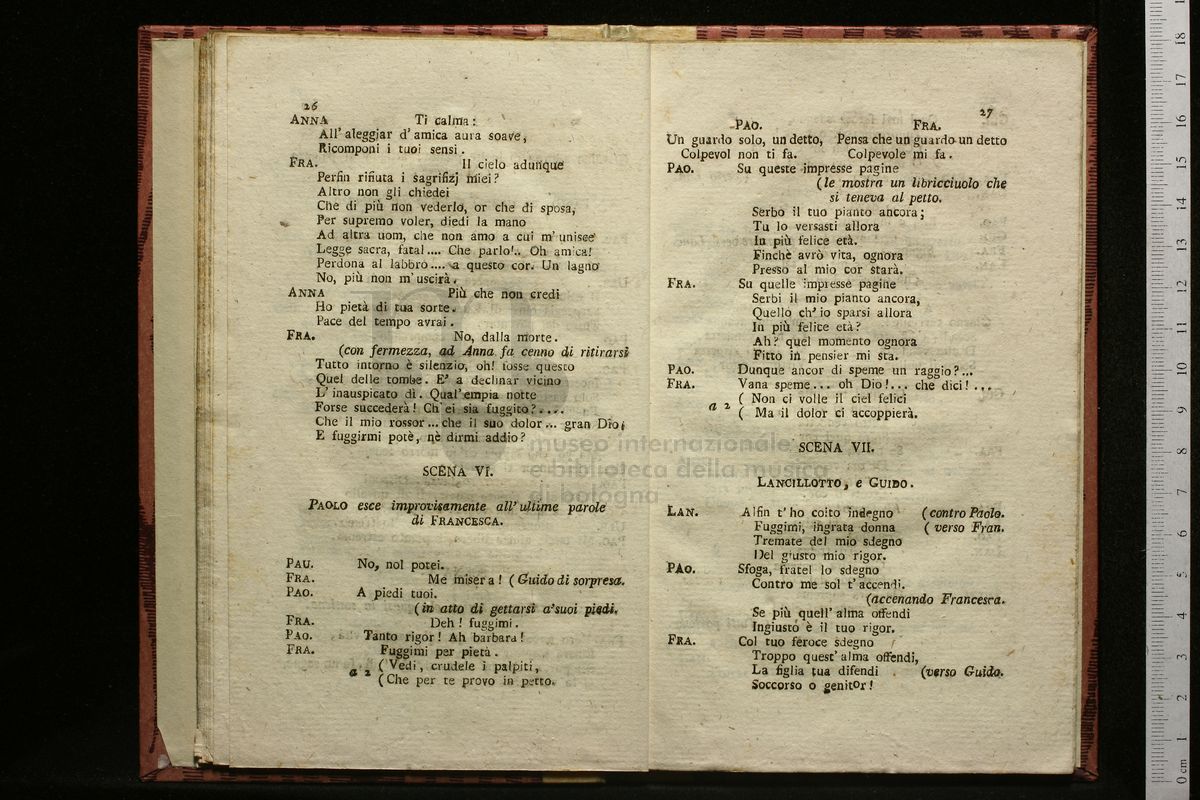 26
ANNA Ti calma:
All' aleggiar d' amica aura soave,
Ricomponi i tuoi sensi.
FRA. Il cielo adunque
Perfin rifiuta i sagrifizj miei?
Altro non gli chiedei
Che di più non vederlo, or che di sposa,
Per supremo voler, diedi la mano
Ad altra uom, che non amo a cui m' unisce
Legge sacra, fatal.... Che parlo!.. Oh amica!
Perdona al labbro.... a questo cor. Un lagno
No, più non m' uscirà.
ANNA Più che non credi
Ho pietà di tua sorte.
Pace del tempo avrai.
FRA. No, dalla morte.
(con fermezza, ad Anna fa cenno di ritirarsi
Tutto intorno è silenzio, oh! fosse questo
Quel delle tombe. E' a declinar vicino
L' inauspicato dì. Qual' empia notte
Forse succederà! Ch' ei sia fuggito?....
Che il mio rossor... che il suo dolor... gran Dio!
E fuggirmi potè, nè dirmi addio?
SCENA VI.
PAOLO esce improvisamente all' ultime parole
di FRANCESCA.
PAU. No, nol potei.
FRA. Me misera! (Guido di sorpresa.
PAO. A piedi tuoi.
(in atto di gettarsi a' suoi piedi.
FRA. Deh! fuggimi.
PAO. Tanto rigor! Ah barbara!
FRA. Fuggimi per pietà.
a 2 (Vedi, crudele i palpiti,
(Che per te provo in petto.
27
PAO. FRA.
Un guardo solo, un detto, Pensa che un guardo un detto
Colpevol non ti fa. Colpevole mi fa.
PAO. Su queste impresse pagine
(le mostra un libricciuolo che
si teneva al petto.
Serbo il tuo pianto ancora;
Tu lo versasti allora
In più felice età.
Finchè avrò vita, ognora
Presso al mio cor starà.
FRA. Su quelle impresse pagine
Serbi il mio pianto ancora,
Quello ch' io sparsi allora
In più felice età?
Ah? quel momento ognora
Fitto in pensier mi sta.
PAO. Dunque ancor di speme un raggio?...
FRA. Vana speme... oh Dio!... che dici! ...
a 2 ( Non ci volle il ciel felici
( Ma il dolor ci accoppierà.
SCENA VII.
LANCILLOTTO, e GUIDO.
LAN. Alfin t' ho colto indegno (contro Paolo.
Fuggimi, ingrata donna (verso Fran.
Tremate del mio sdegno
Del giusto mio rigor.
PAO. Sfoga, fratel lo sdegno
Contro me sol t' accendi.
(accenando Francesca.
Se più quell' alma offendi
Ingiusto è il tuo rigor.
FRA. Col tuo feroce sdegno
Troppo quest' alma offendi,
La figlia tua difendi (verso Guido.
Soccorso o genitor!
museo internazionale
e biblioteca della musica
di bologna
0 cm 1 2 3 4 5 6 7 8 9 10 11 12 13 14 15 16 17 18